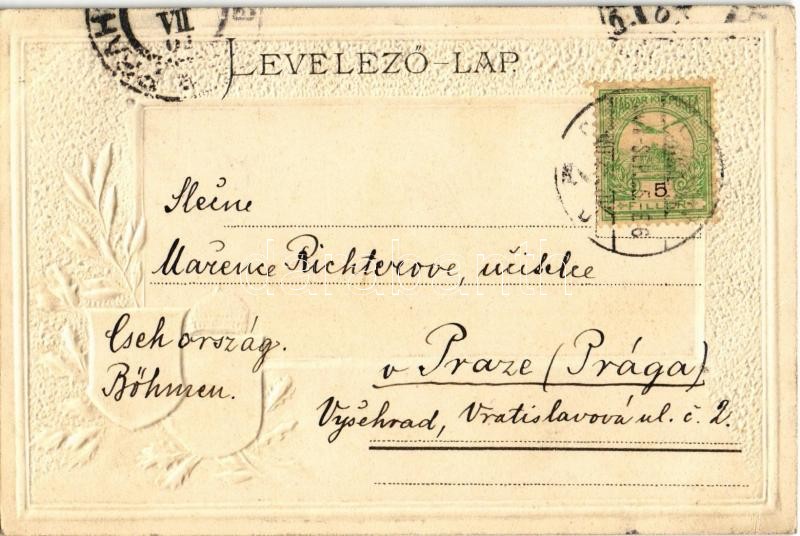 VII
LEVELEZŐ-LAP.
MAGYAR KIR. POSTA
5
FILLÉR
Slečne
Mařence Richterove, učitelce
Csehország.
v Praze (Prága)
Böhmen.
Vyšehrad, Vratislavová ul. č. 2.